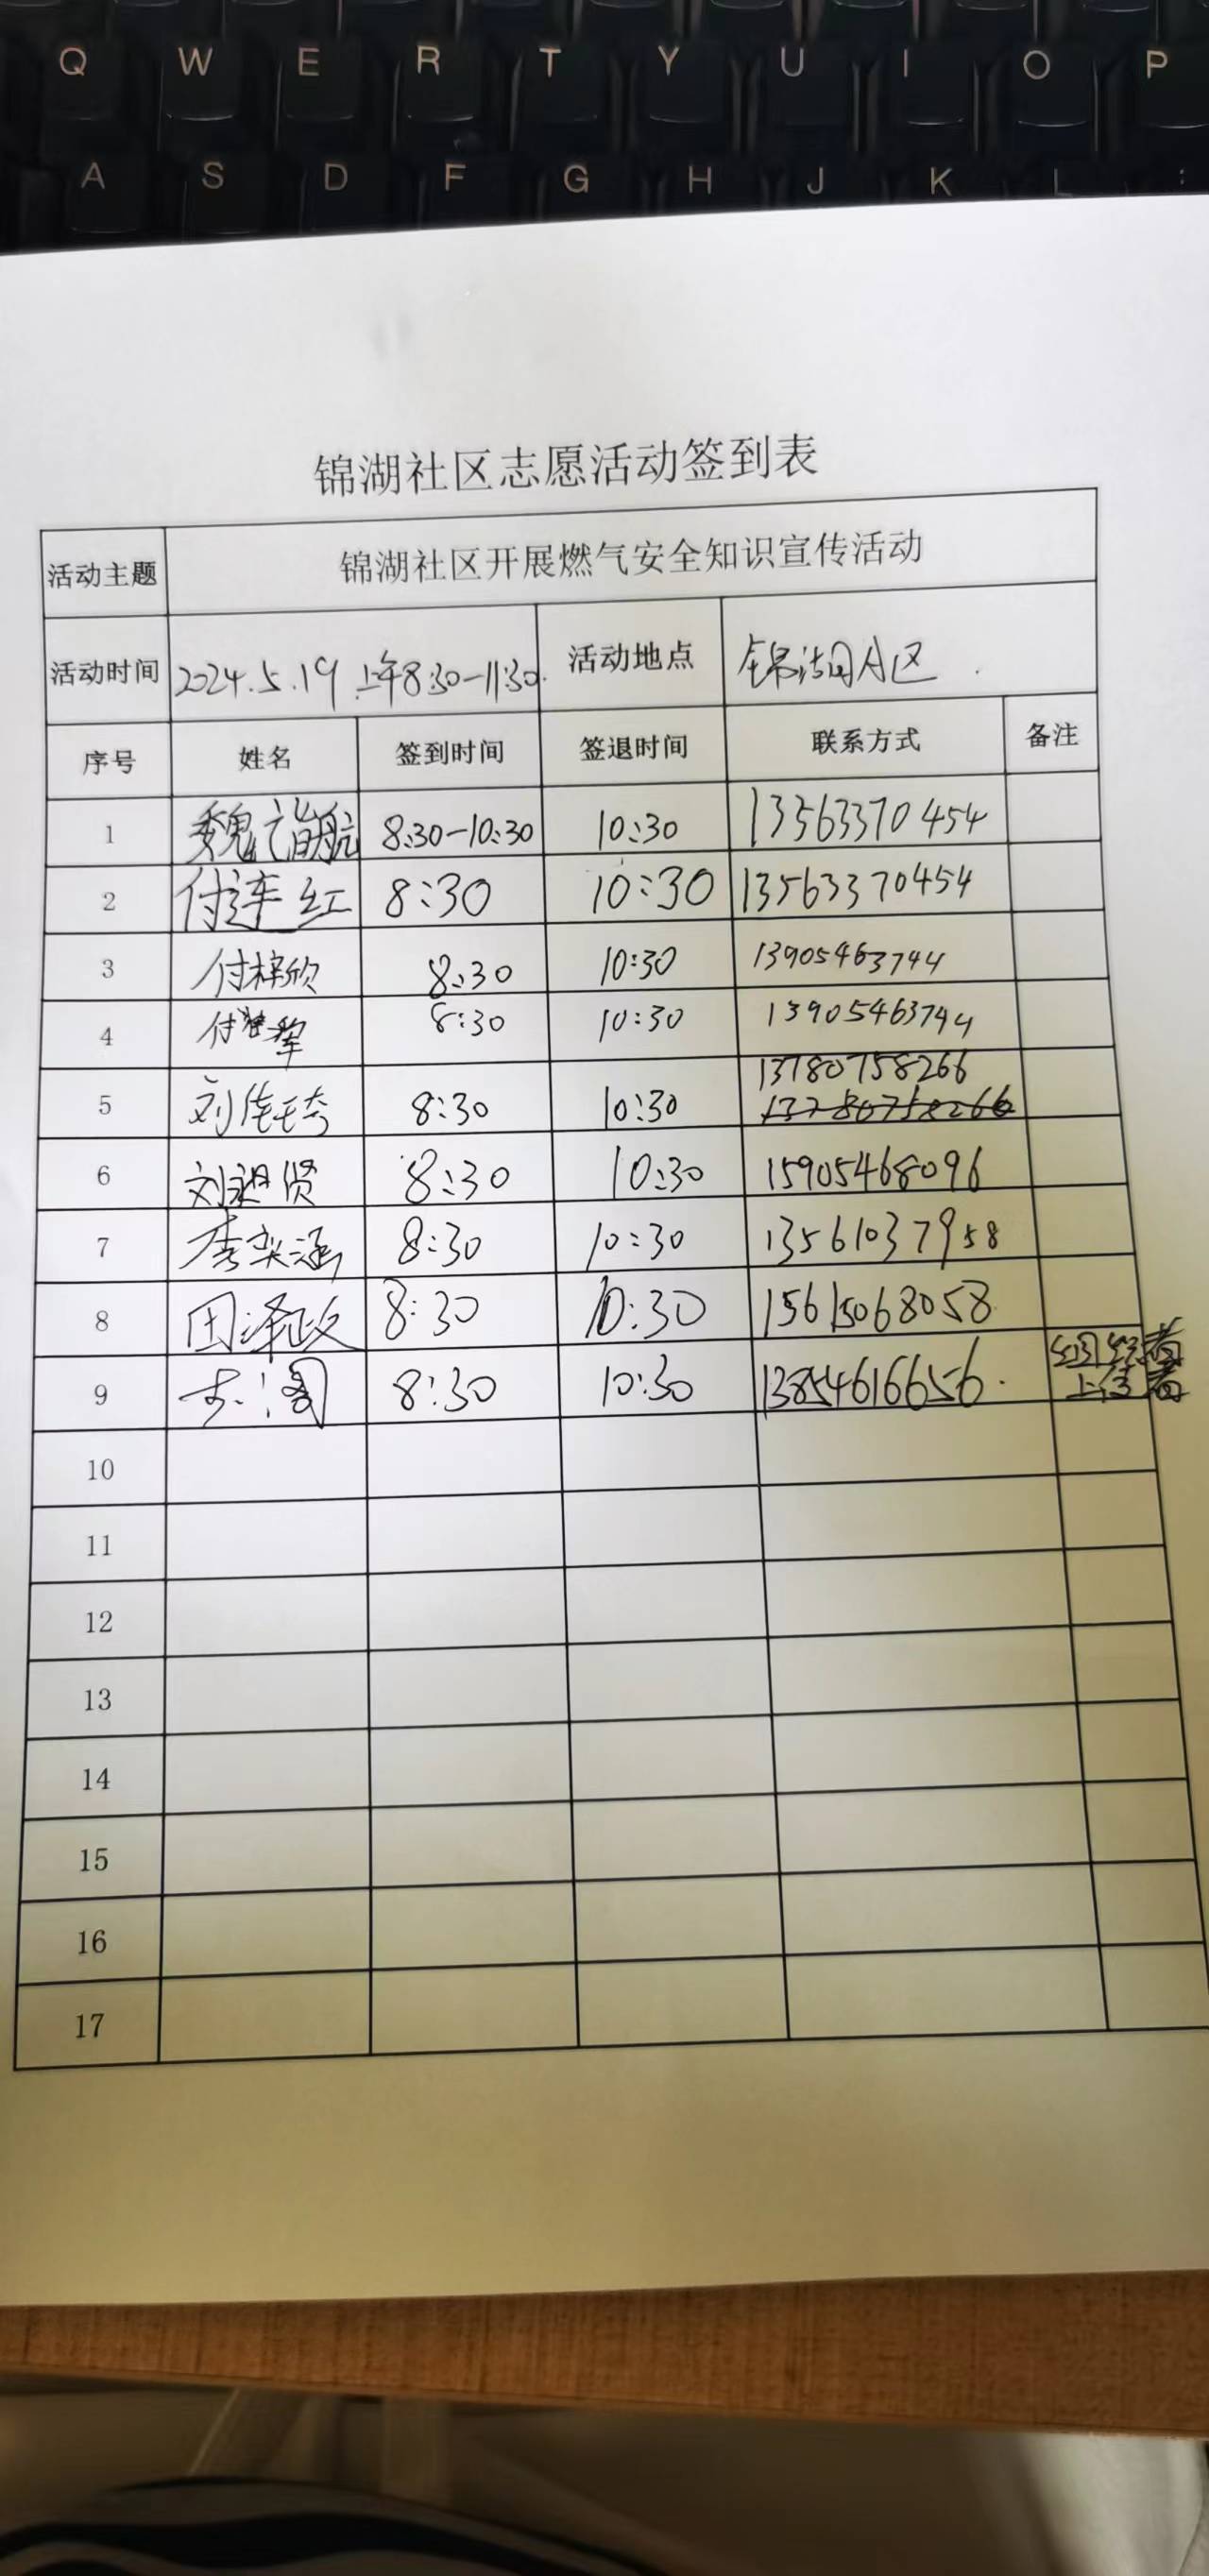 Q W E R T Y U I O P
A S D F G H J K L :
锦湖社区志愿活动签到表
活动主题 锦湖社区开展燃气安全知识宣传活动
活动时间 2024.5.19 上午8:30-11:30. 活动地点 锦湖园A区
序号 姓名 签到时间 签退时间 联系方式 备注
1 魏 航 8:30-10:30 10:30 13563370454
2 付连红 8:30 10:30 13563370454
3 付梓欣 8:30 10:30 13905463744
4 付 8:30 10:30 13905463744
13780758266
5 刘佳琦 8:30 10:30 13780758266
6 刘 贤 8:30 10:30 15905468096
7 李奕涵 8:30 10:30 13561037958
8 田泽政 8:30 10:30 15615068058
9 8:30 10:30 13854616656. 组织者
上传者
10
11
12
13
14
15
16
17